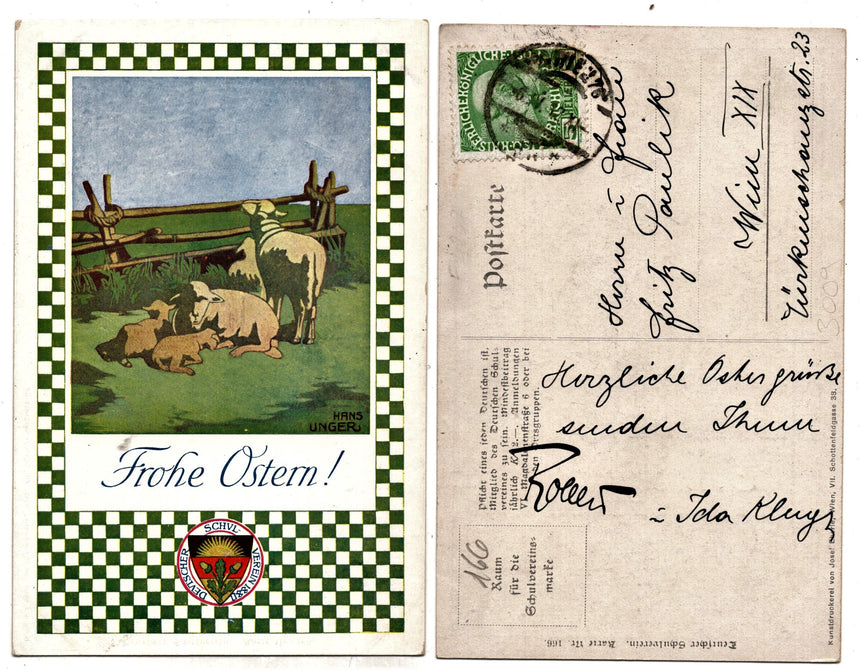 HANS
UNGER
Frohe Ostern!
DEUTSCHER SCHUL-VEREIN 1880
KAISERLICHEKÖNIGLICHE
Postkarte
Herrn u Frau
Fritz Paulik
Wien XIX
Türkenschanzstr. 23
3009
Herzliche Ostergrüße
senden Ihnen
Robert
u Ida Kluge
Pflicht eines jeden Deutschen ist,
Mitglied des Deutschen Schul-
vereines zu sein. Mindestbeitrag
jährlich K 2.—. Anmeldungen
VI. Magdalenenstraße 6 oder bei
den Ortsgruppen.
166
Raum
für die
Schulvereins-
marke
Deutscher Schulverein. Karte Nr. 166.
Kunstdruckerei von Josef Wien, VII. Schottenfeldgasse 38.